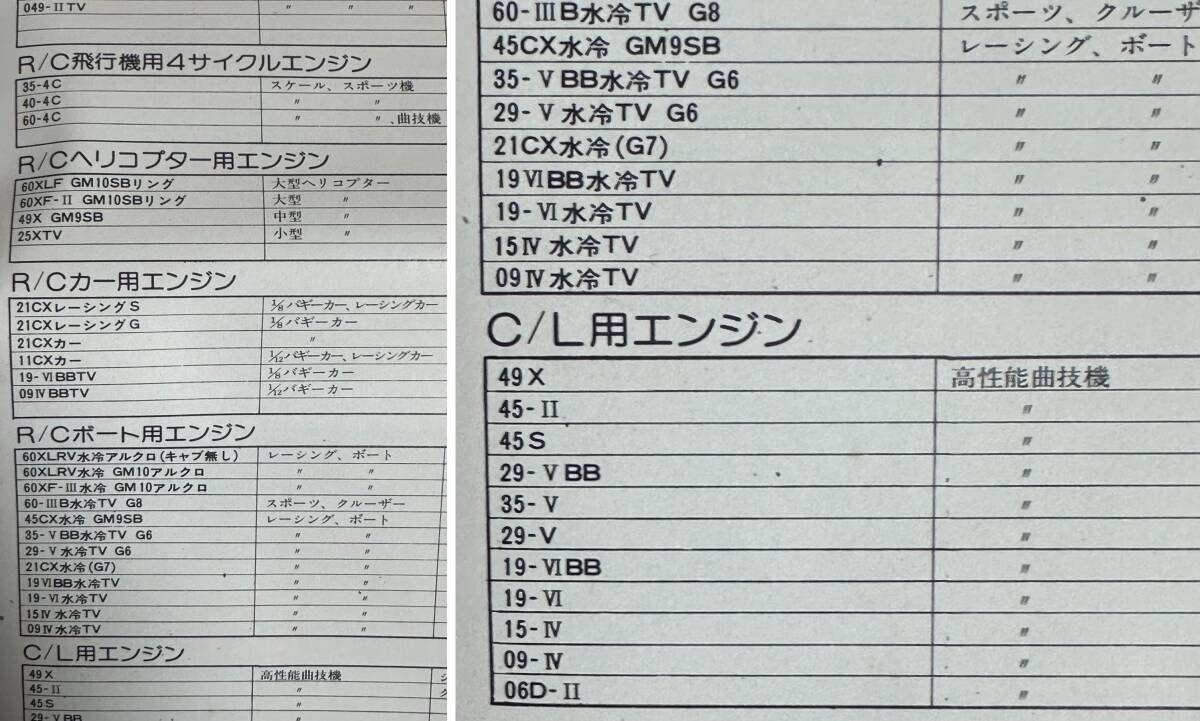 049-ⅡTV 〃 〃 〃
R/C飛行機用4サイクルエンジン
35-4C スケール、スポーツ機
40-4C 〃 〃
60-4C 〃 〃、曲技機
R/Cヘリコプター用エンジン
60XLF GM10SBリング 大型ヘリコプター
60XF-Ⅱ GM10SBリング 大型 〃
49X GM9SB 中型 〃
25XTV 小型 〃
R/Cカー用エンジン
21CXレーシングS 1/8バギーカー、レーシングカー
21CXレーシングG 1/8バギーカー
21CXカー 〃
11CXカー 1/12バギーカー、レーシングカー
19-ⅥBBTV 1/8バギーカー
09ⅣBBTV 1/12バギーカー
R/Cボート用エンジン
60XLRV水冷アルクロ(キャブ無し) レーシング、ボート
60XLRV水冷 GM10アルクロ 〃 〃
60XF-Ⅲ水冷 GM10アルクロ 〃 〃
60-ⅢB水冷TV G8 スポーツ、クルーザー
45CX水冷 GM9SB レーシング、ボート
35-ⅤBB水冷TV G6 〃 〃
29-Ⅴ水冷TV G6 〃 〃
21CX水冷(G7) 〃 〃
19ⅥBB水冷TV 〃 〃
19-Ⅵ水冷TV 〃 〃
15Ⅳ水冷TV 〃 〃
09Ⅳ水冷TV 〃 〃
C/L用エンジン
49X 高性能曲技機
45-Ⅱ 〃
45S 〃
29-ⅤBB 〃
60-ⅢB水冷TV G8 スポーツ、クルーザ
45CX水冷 GM9SB レーシング、ボート
35-ⅤBB水冷TV G6 〃 〃
29-Ⅴ水冷TV G6 〃 〃
21CX水冷(G7) 〃 〃
19ⅥBB水冷TV 〃 〃
19-Ⅵ水冷TV 〃 〃
15Ⅳ水冷TV 〃 〃
09Ⅳ水冷TV 〃 〃
C/L用エンジン
49X 高性能曲技機
45-Ⅱ 〃
45S 〃
29-ⅤBB 〃
35-Ⅴ 〃
29-Ⅴ 〃
19-ⅥBB 〃
19-Ⅵ 〃
15-Ⅳ 〃
09-Ⅳ 〃
06D-Ⅱ 〃